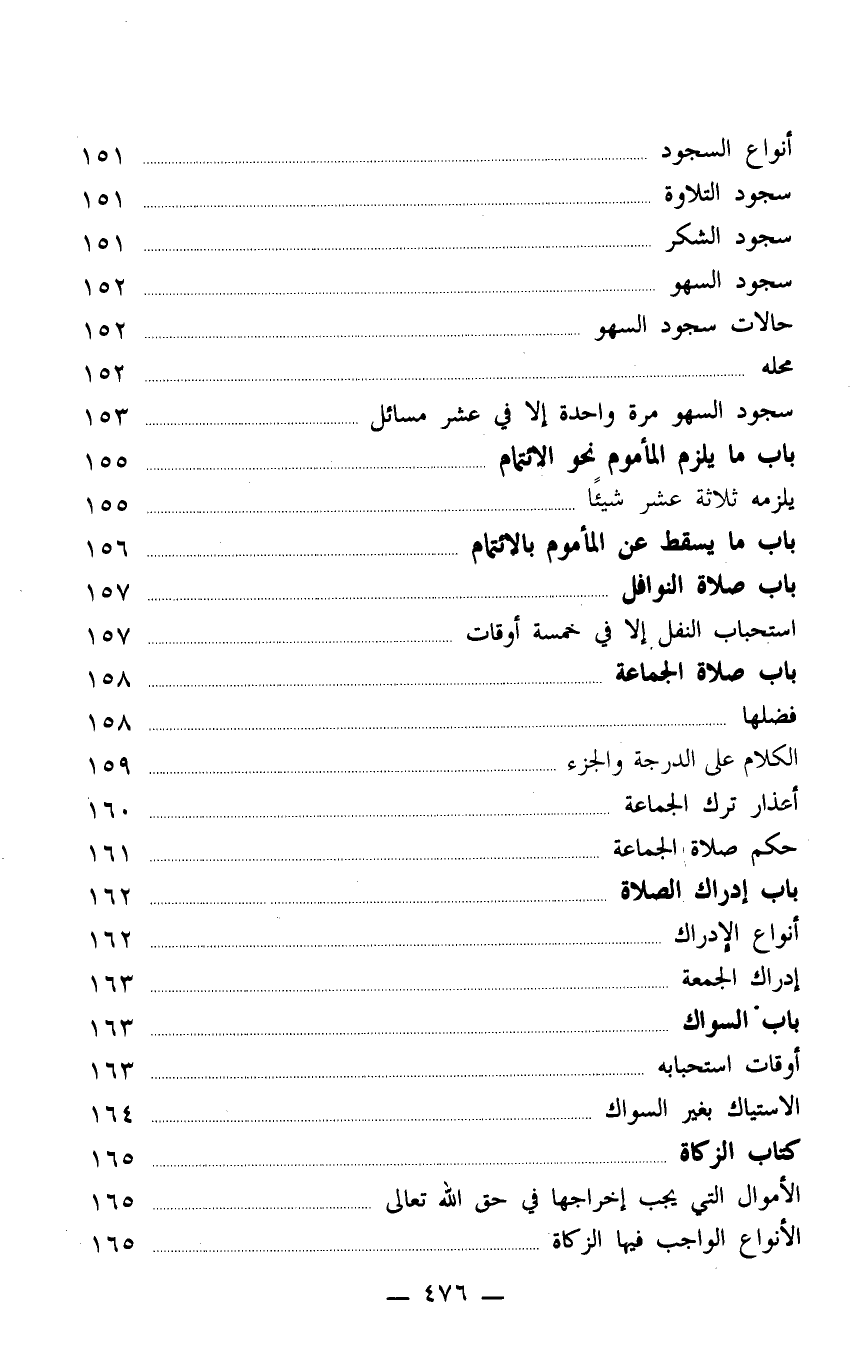 أنواع السجود ........ ١٥١
سجود التلاوة ........ ١٥١
سجود الشكر ........ ١٥١
سجود السهو ........ ١٥٢
حالات سجود السهو ........ ١٥٢
محله ........ ١٥٢
سجود السهو مرة واحدة إلا في عشر مسائل ........ ١٥٣
باب ما يلزم المأموم نحو الائتمام ........ ١٥٥
يلزمه ثلاثة عشر شيئًا ........ ١٥٥
باب ما يسقط عن المأموم بالائتمام ........ ١٥٦
باب صلاة النوافل ........ ١٥٧
استحباب النفل إلا في خمسة أوقات ........ ١٥٧
باب صلاة الجماعة ........ ١٥٨
فضلها ........ ١٥٨
الكلام على الدرجة والجزء ........ ١٥٩
أعذار ترك الجماعة ........ ١٦٠
حكم صلاة الجماعة ........ ١٦١
باب إدراك الصلاة ........ ١٦٢
أنواع الإدراك ........ ١٦٢
إدراك الجمعة ........ ١٦٣
باب السواك ........ ١٦٣
أوقات استحبابه ........ ١٦٣
الاستياك بغير السواك ........ ١٦٤
كتاب الزكاة ........ ١٦٥
الأموال التي يجب إخراجها في حق الله تعالى ........ ١٦٥
الأنواع الواجب فيها الزكاة ........ ١٦٥
— ٤٧٦ —